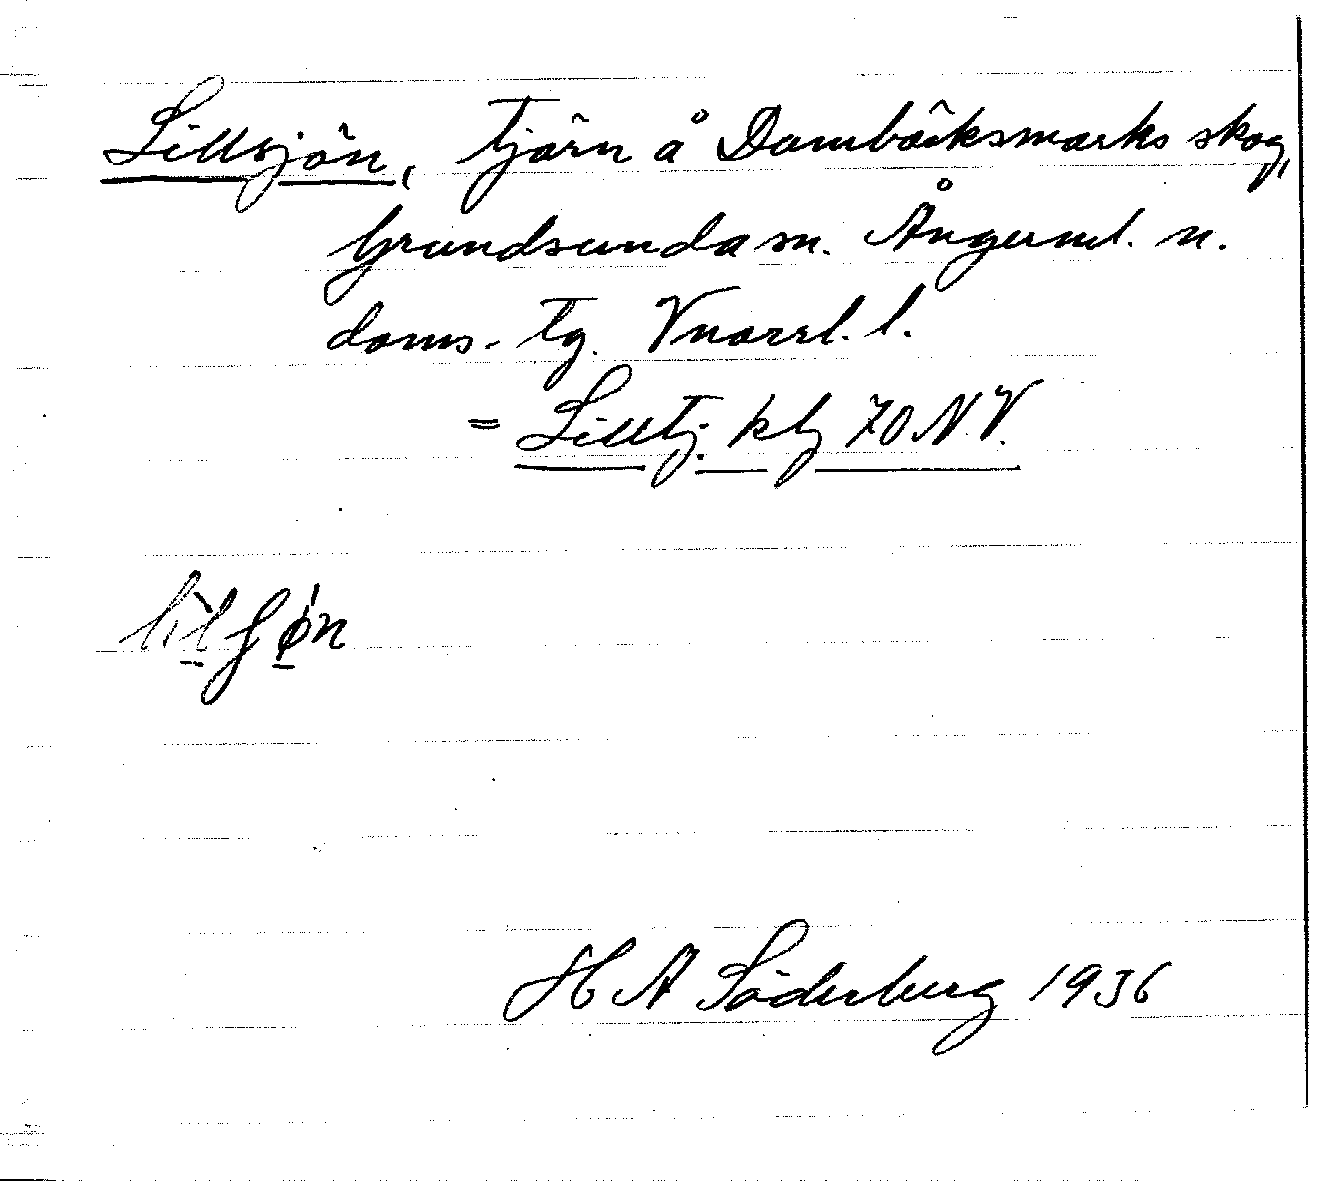 Lillsjön, tjärn å Dombäcksmarks skog,
Grundsunda sn. Ångerml. n.
doms. tg. Vnorrl. l.
= Lilltj. kbl 70 N.V.
lìlʃǿn
H A Söderberg 1936